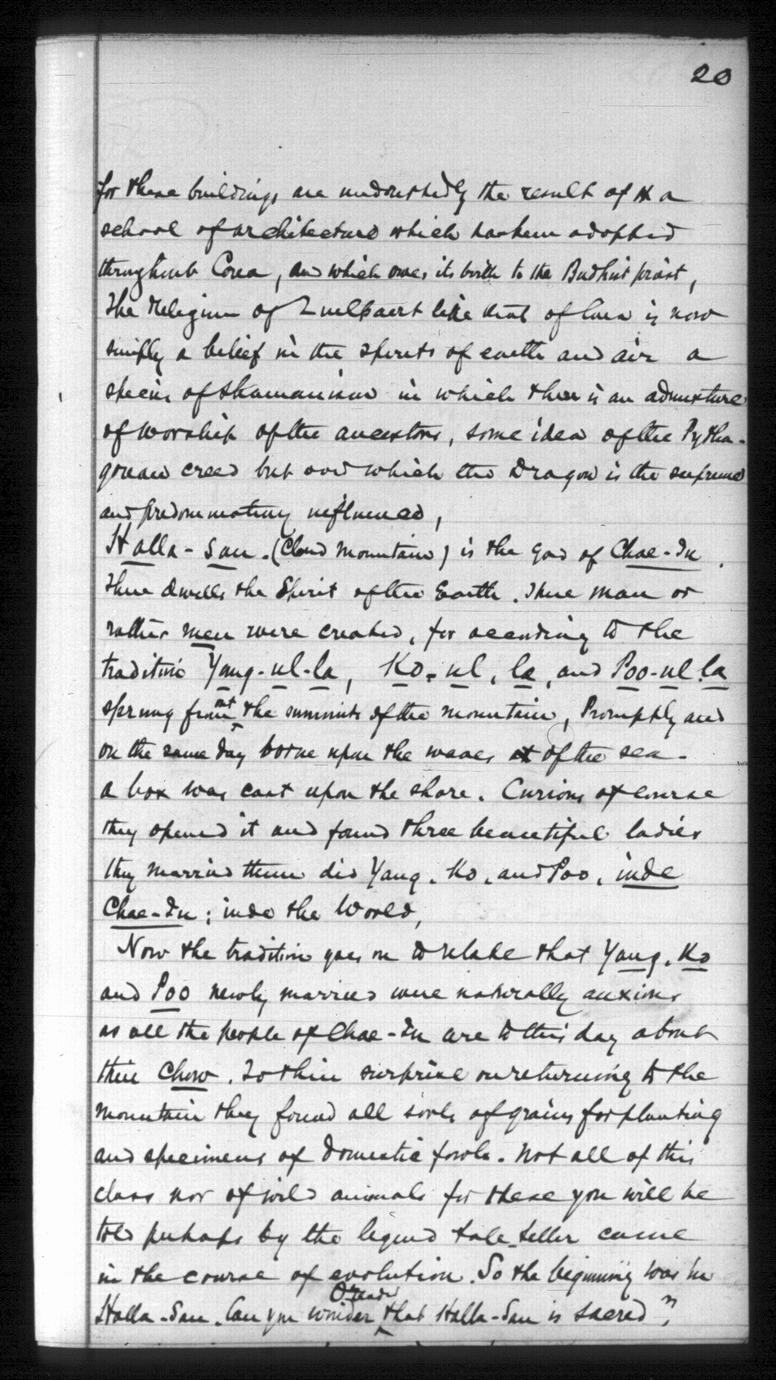 20
for these buildings are undoubtedly the result of a
school of architecture which has been adopted
throughout Corea, and which owes its birth to the Budhist priest,
The Religion of Quelpaert like that of Corea is now
simply a belief in the spirits of earth and air a
species of Shamanism in which there is an admixture
of worship of the ancestors, some idea of the Pytha-
gorean creed but over which the Dragon is the supreme
and predominating influence,
Halla-San. (Cloud Mountain) is the god of Chae-Ju.
There dwells the Spirit of the Earth. There man or
rather men were created, for according to the
tradition Yang-ul-la, Ko-ul, la, and Poo-ul-la
sprung from the summit of the mountain, Promptly and
on the same day borne upon the waves of the sea-
a box was cast upon the shore. Curious of course
they opened it and found three beautiful ladies
they married them did Yang, Ko, and Poo, inde
Chae-Ju; inde the World,
Now the tradition goes on to relate that Yang, Ko
and Poo newly married were naturally anxious
as all the people of Chae-Ju are to this day about
their Chow. To their surprise on returning to the
mountain they found all sorts of grains for planting
and specimens of domestic fowls. Not all of this
class nor of wild animals for these you will be
told perhaps by the legend tale-teller came
in the course of evolution. So the beginning was in
Halla-San. Can you wonder that Halla-San is sacred?